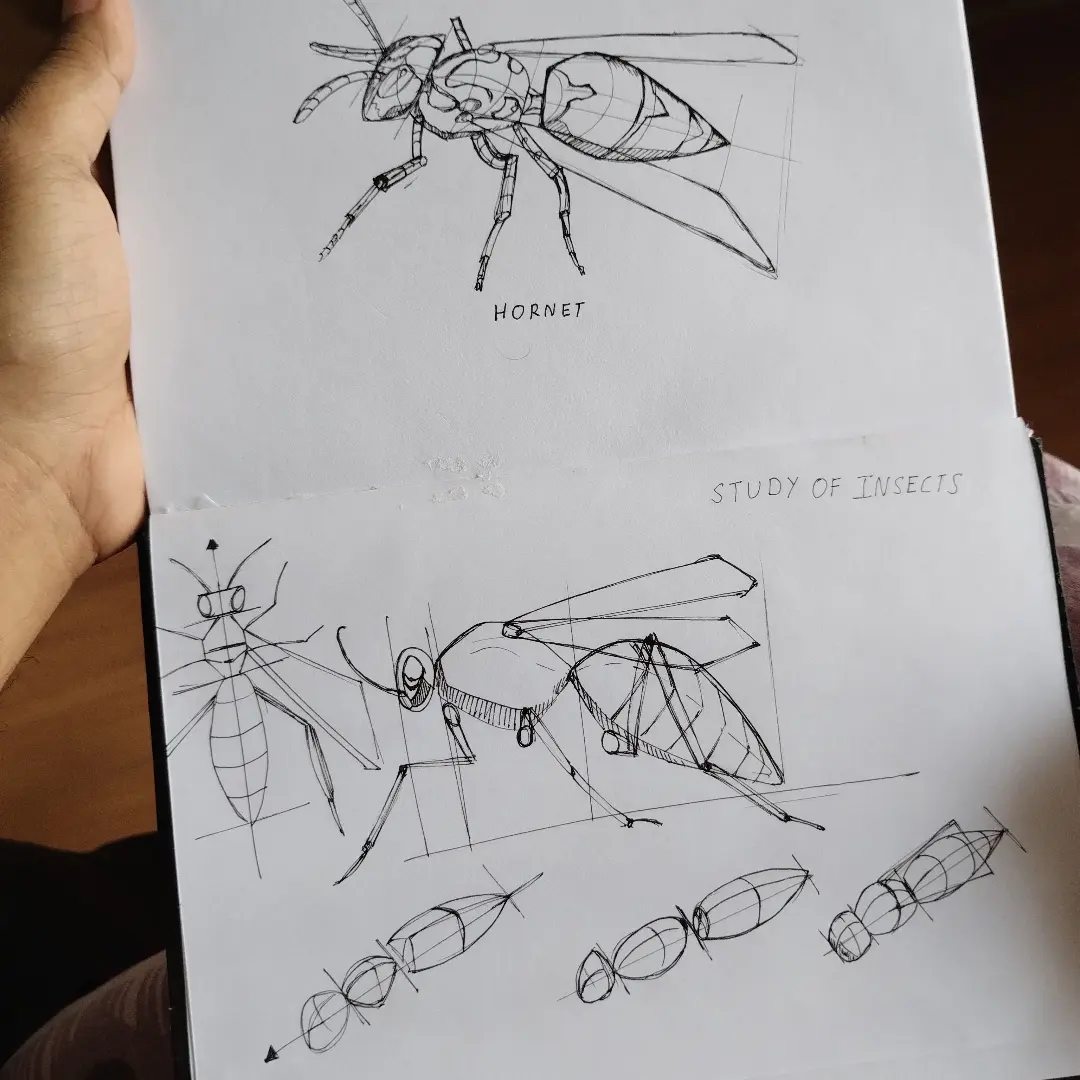 HORNET
STUDY OF INSECTS